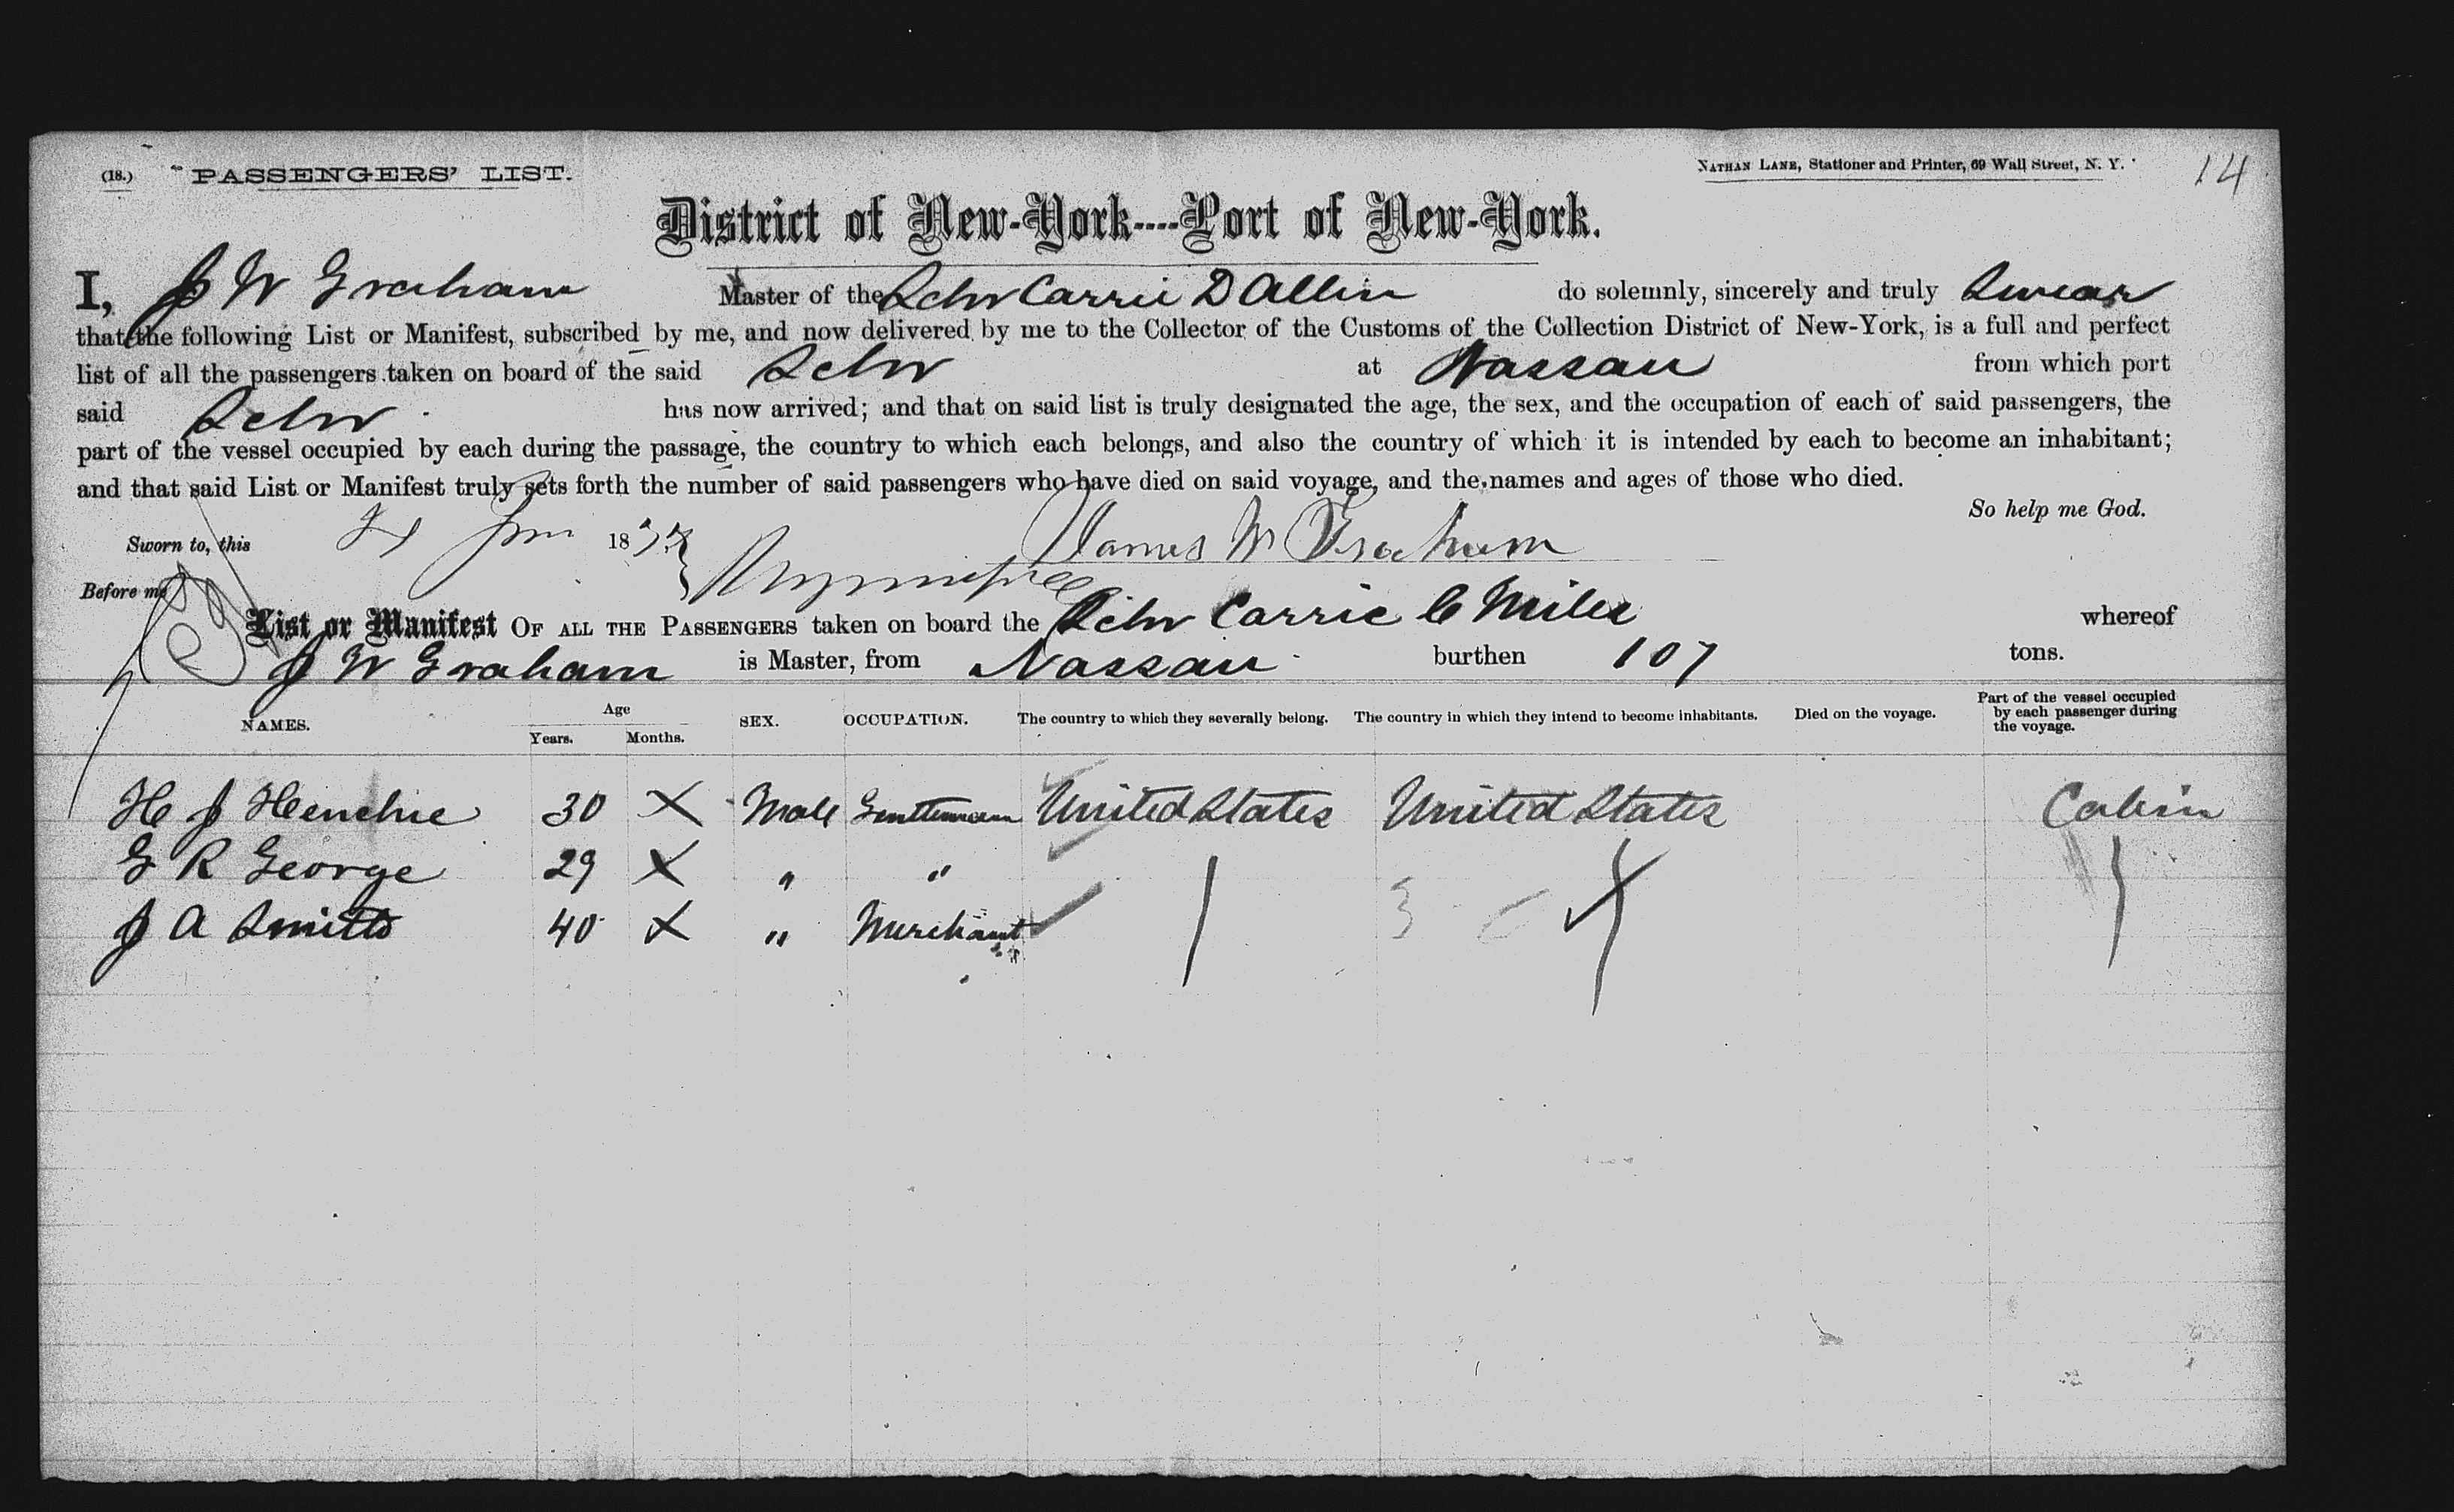 (18.) PASSENGERS' LIST.
NATHAN LANE, Stationer and Printer, 69 Wall Street, N. Y.
14
District of New-York----Port of New-York.
I, J W Graham Master of the Schr Carrie D Allin do solemnly, sincerely and truly Swear
that the following List or Manifest, subscribed by me, and now delivered by me to the Collector of the Customs of the Collection District of New-York, is a full and perfect
list of all the passengers taken on board of the said Schr at Nassau from which port
said Schr has now arrived; and that on said list is truly designated the age, the sex, and the occupation of each of said passengers, the
part of the vessel occupied by each during the passage, the country to which each belongs, and also the country of which it is intended by each to become an inhabitant;
and that said List or Manifest truly sets forth the number of said passengers who have died on said voyage, and the names and ages of those who died.
So help me God.
Sworn to, this 18 James W Graham
Before me
List or Manifest OF ALL THE PASSENGERS taken on board the Schr Carrie C Miles whereof
J W Graham is Master, from Nassau burthen 107 tons.
NAMES. Age Years. Months. SEX. OCCUPATION. The country to which they severally belong. The country in which they intend to become inhabitants. Died on the voyage. Part of the vessel occupied by each passenger during the voyage.
H J Henchie 30 X Male Gentleman United States United States Cabin
G R George 29 X " "
J A Smith 40 X " Merchant